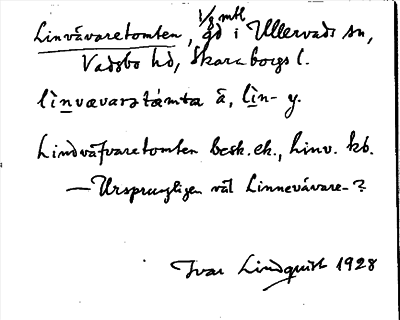 Linvävaretomten, 1/8 mtl gd i Ullervads sn,
Vadsbo hd, Skaraborgs l.
lìnvævarətåmta ä, lìn- y.
Lindväfvaretomten besk. ek., Linv. kb.
— Ursprungligen väl Linnevävare-?
Ivar Lindquist 1928